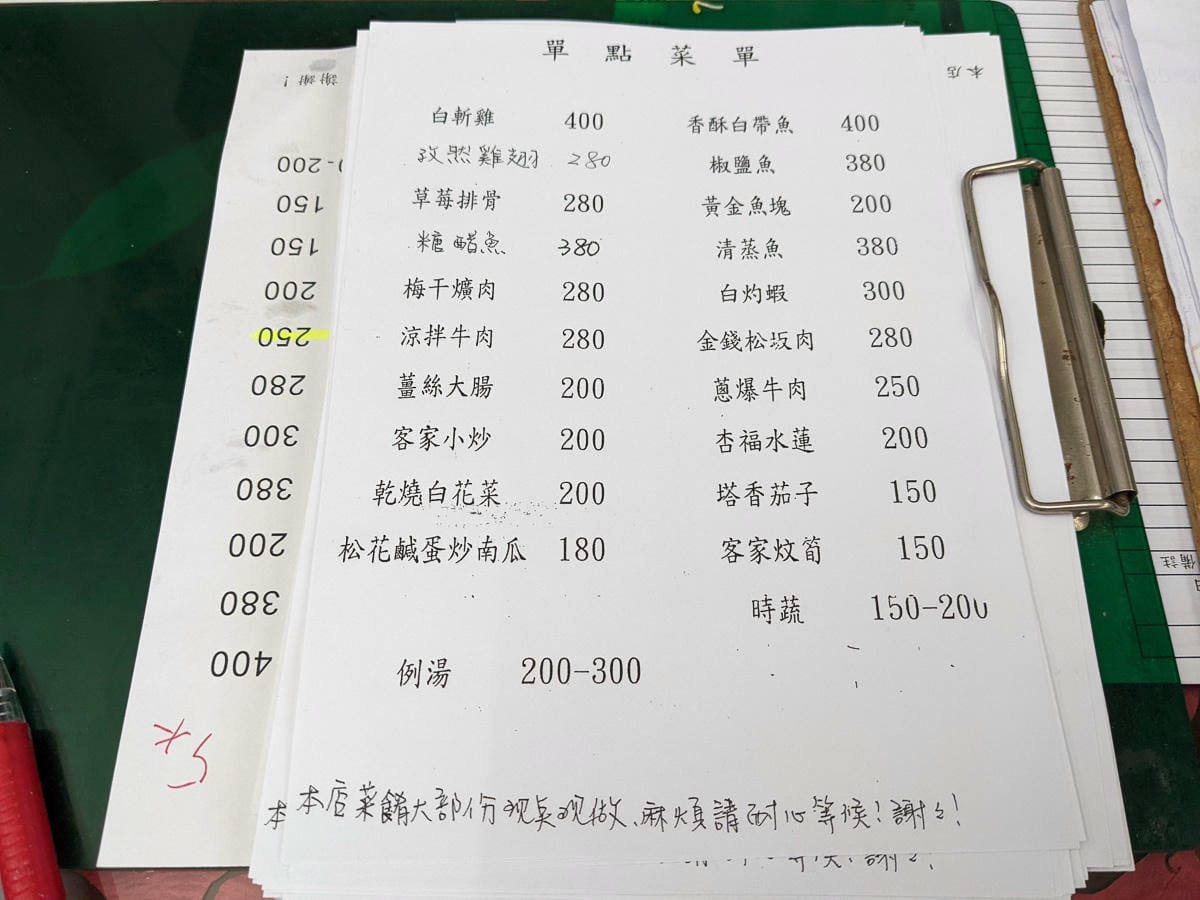 單點菜單
白斬雞 400 香酥白帶魚 400
孜然雞翅 280 椒鹽魚 380
草莓排骨 280 黃金魚塊 200
糖醋魚 380 清蒸魚 380
梅干爌肉 280 白灼蝦 300
涼拌牛肉 280 金錢松坂肉 280
薑絲大腸 200 蔥爆牛肉 250
客家小炒 200 杏福水蓮 200
乾燒白花菜 200 塔香茄子 150
松花鹹蛋炒南瓜 180 客家炆筍 150
時蔬 150-200
例湯 200-300
本店菜餚大部份現点現做、麻煩請耐心等候!謝々!
本
謝々!
400
380
200
380
300
280
250
200
150
150
-200
謝謝!
本店
備註